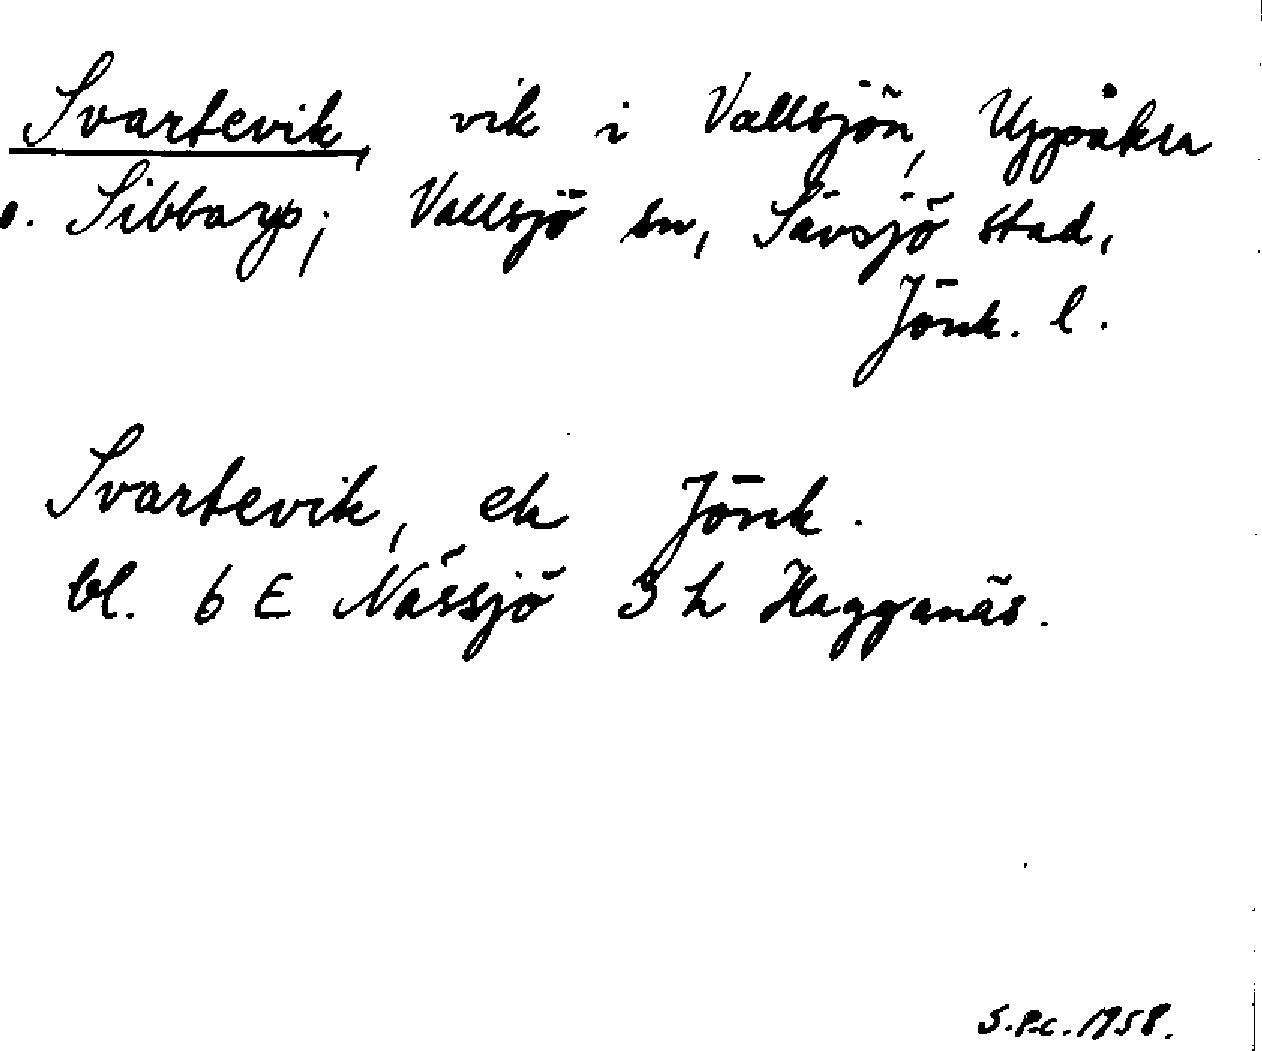 Svartevik, vik i Vallsjön, Uppåkra
o. Sibbarp; Vallsjö sn, Sävsjö stad,
Jönk. l.
Svartevik, ek Jönk.
bl. 6 E Nässjö 3 h Hagganäs.
S.P.C. 1958.